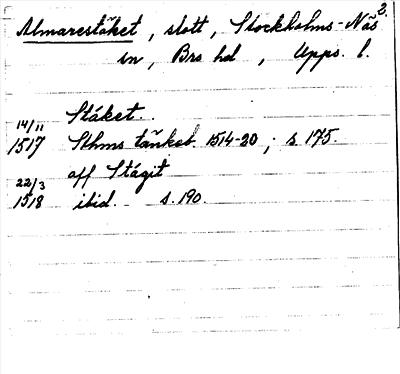 2.
Almarestäket, slott, Stockholms-Näs
sn, Bro hd, Upps. l.
14/11 Stäket.
1517 Sthms tänkeb. 1514-20; s. 175.
aff Stägit
22/3
1518 ibid. s. 190.